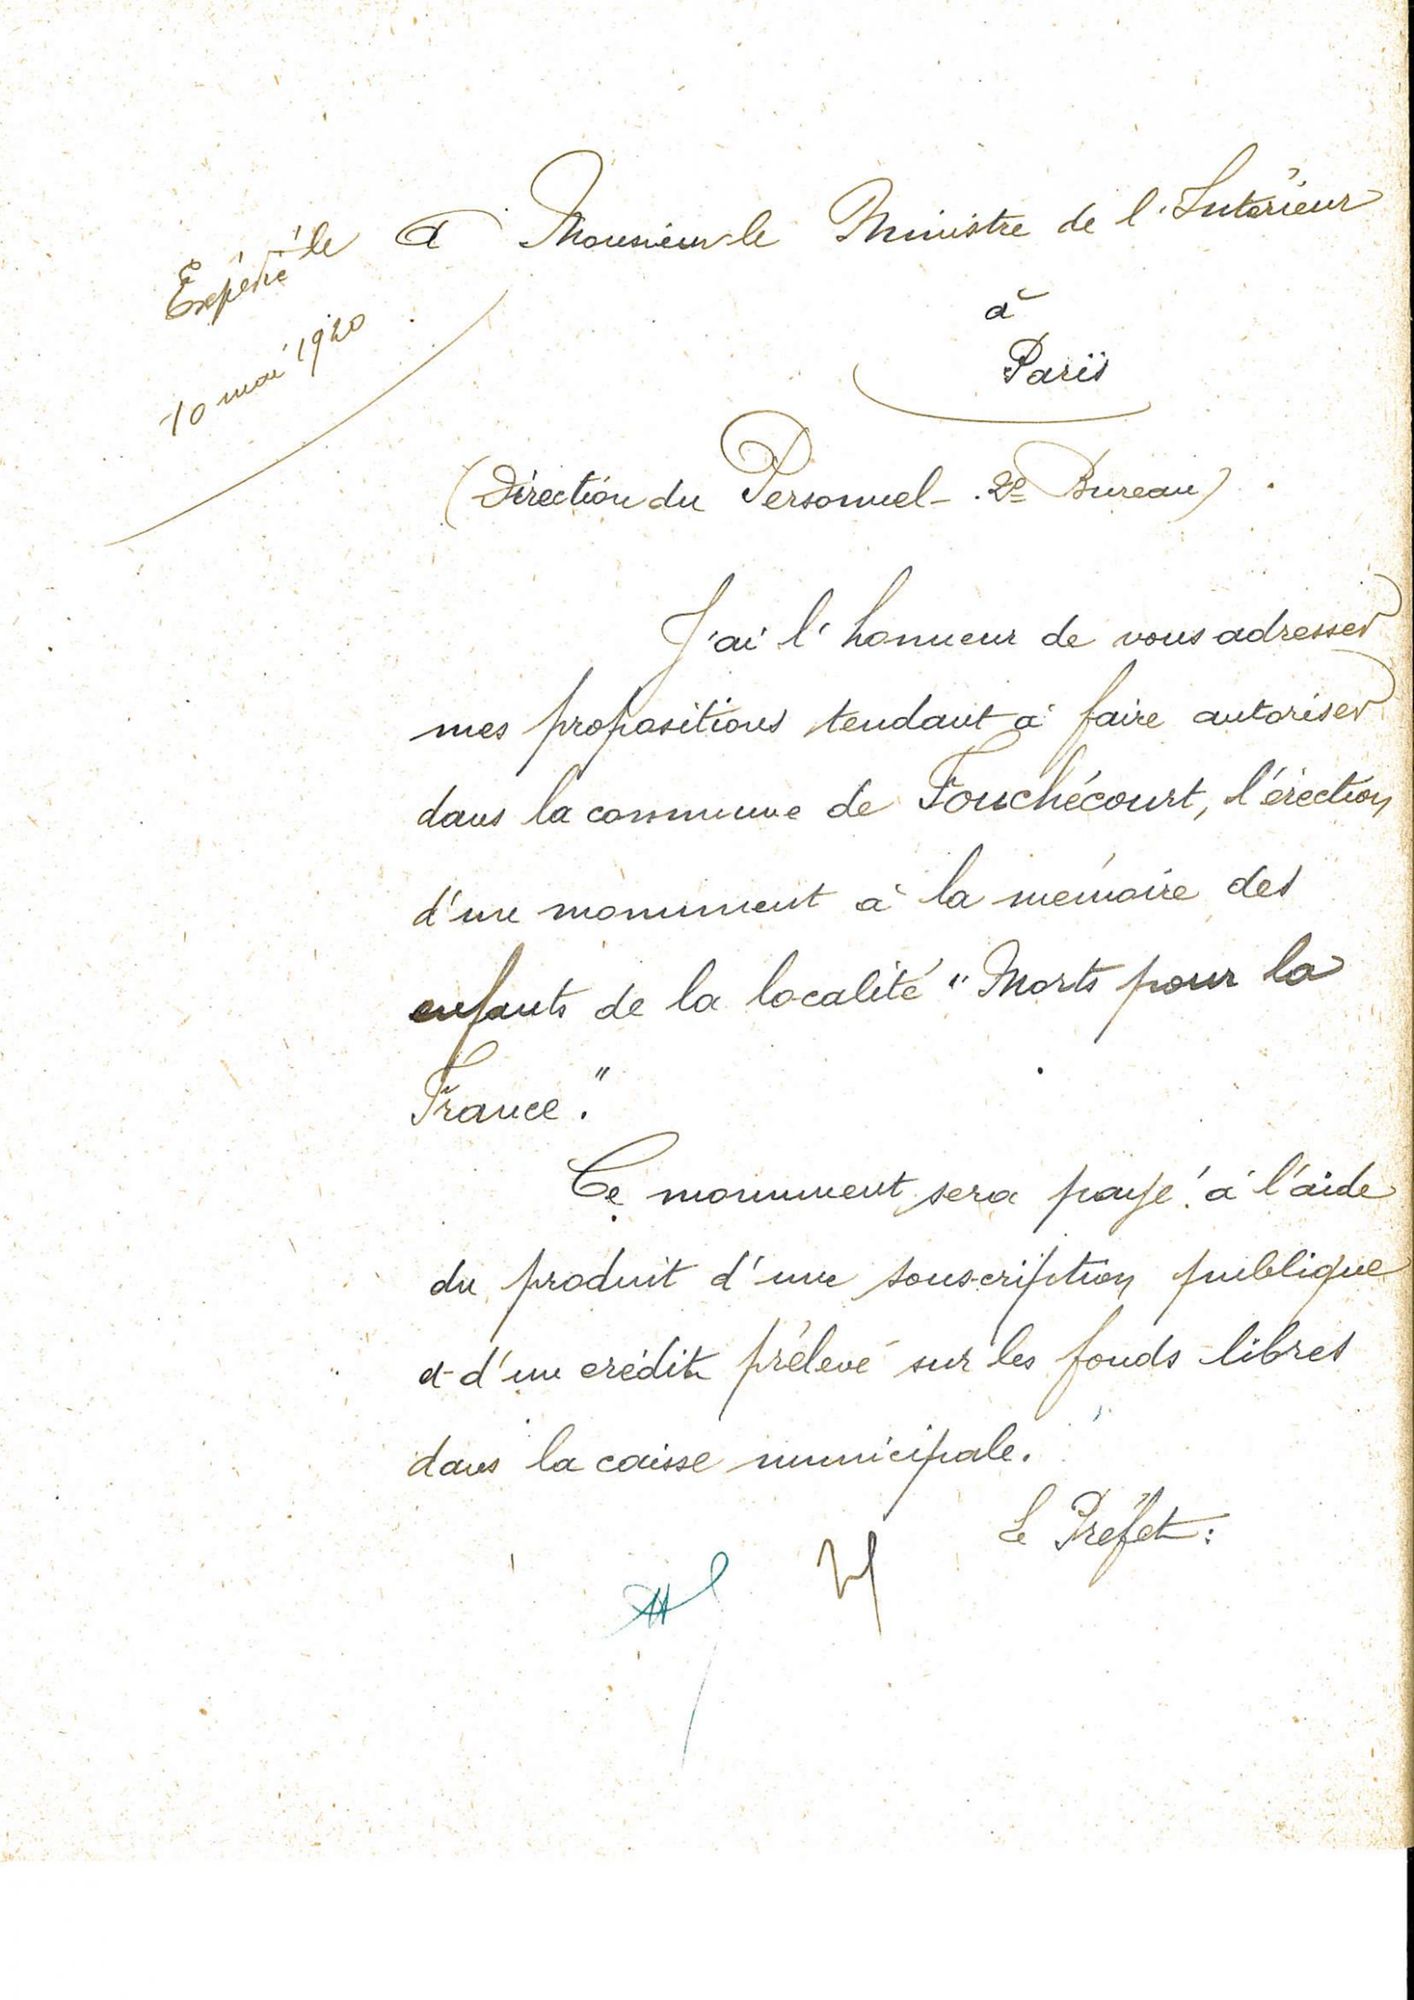 Expédié le
10 mai 1920
A Monsieur le Ministre de l'Intérieur
à
Paris
(Direction du Personnel - 2e Bureau)
J'ai l'honneur de vous adresser
mes propositions tendant à faire autoriser
dans la commune de Fouchécourt, l'érection
d'un monument à la mémoire des
enfants de la localité "Morts pour la
France."
Ce monument sera payé à l'aide
du produit d'une souscription publique
et d'un crédit prélevé sur les fonds libres
dans la caisse municipale.
Le Préfet: